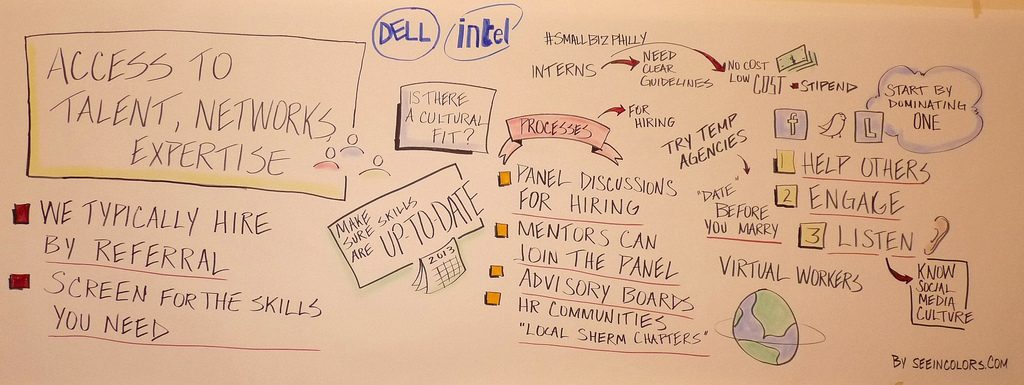 ACCESS TO
TALENT, NETWORKS,
EXPERTISE
WE TYPICALLY HIRE
BY REFERRAL
SCREEN FOR THE SKILLS
YOU NEED
DELL
intel
IS THERE
A CULTURAL
FIT?
MAKE
SURE SKILLS
ARE UP-TO-DATE
2013
#SMALLBIZPHILLY
INTERNS
NEED
CLEAR
GUIDELINES
NO COST
LOW COST
STIPEND
PROCESSES
FOR
HIRING
PANEL DISCUSSIONS
FOR HIRING
MENTORS CAN
JOIN THE PANEL
ADVISORY BOARDS
HR COMMUNITIES
"LOCAL SHERM CHAPTERS"
TRY TEMP
AGENCIES
"DATE"
BEFORE
YOU MARRY
VIRTUAL WORKERS
f
L
START BY
DOMINATING
ONE
1 HELP OTHERS
2 ENGAGE
3 LISTEN
KNOW
SOCIAL
MEDIA
CULTURE
BY SEEINCOLORS.COM